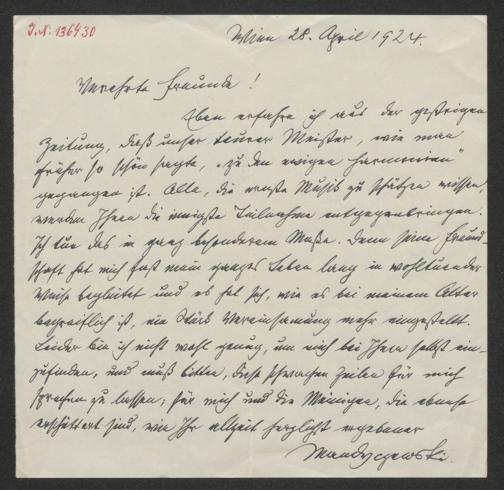 I.N. 136430
Wien 28. April 1924.
Verehrte Freunde!
Eben erfahre ich aus der gestrigen
Zeitung, daß unser teurer Meister, wie man
früher so schön sagte, „zu den ewigen Harmonien“
gegangen ist. Alle, die ernste Musik zu schätzen wissen,
werden Ihnen die innigste Teilnahme entgegenbringen.
Ich tue das in ganz besonderem Maße. Denn seine Freund-
schaft hat mich fast mein ganzes Leben lang in wohltuender
Weise begleitet und es hat sich, wie es bei meinem Alter
begreiflich ist, ein Stück Vereinsamung mehr eingestellt.
Leider bin ich nicht wohl genug, um mich bei Ihnen selbst ein-
zufinden, und muß bitten, diese schwachen Zeilen für mich
sprechen zu lassen; für mich und die Meinigen, die ebenso
erschüttert sind, wie Ihr allzeit herzlichst ergebener
Mandyczewski.